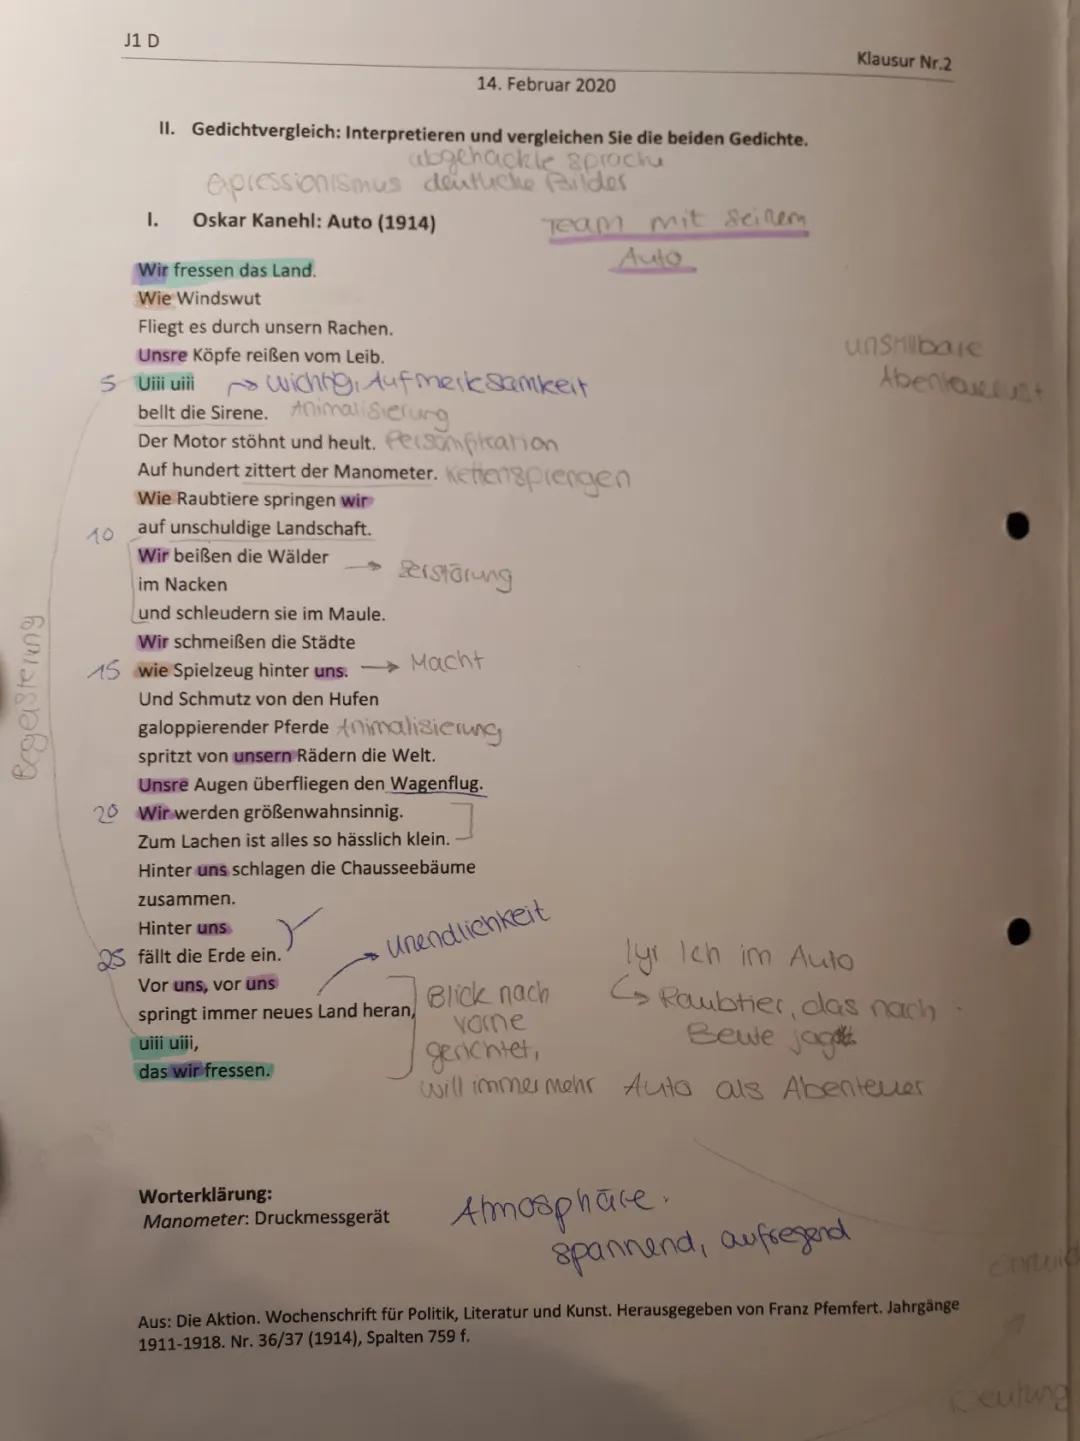 J1 D
Klausur Nr.2
14. Februar 2020
II. Gedichtvergleich: Interpretieren und vergleichen Sie die beiden Gedichte.
abgehackte sprache
Expressionismus deutliche Bilder
I. Oskar Kanehl: Auto (1914)
Team mit seinem
Auto
Wir fressen das Land.
Wie Windswut
Fliegt es durch unsern Rachen.
Unsre Köpfe reißen vom Leib.
unstillbare
Abenteuerlust
5 Uiii uiii wichtig, Aufmerksamkeit
bellt die Sirene. Animalisierung
Der Motor stöhnt und heult. Personifikation
Auf hundert zittert der Manometer. Kettensprengen
Wie Raubtiere springen wir
10 auf unschuldige Landschaft.
Wir beißen die Wälder
im Nacken
→ Zerstörung
und schleudern sie im Maule.
Wir schmeißen die Städte
15 wie Spielzeug hinter uns. → Macht
Und Schmutz von den Hufen
galoppierender Pferde Animalisierung
spritzt von unsern Rädern die Welt.
Unsre Augen überfliegen den Wagenflug.
20 Wir werden größenwahnsinnig.
Zum Lachen ist alles so hässlich klein.
Hinter uns schlagen die Chausseebäume
zusammen.
Hinter uns
25 fällt die Erde ein.
Vor uns, vor uns
springt immer neues Land heran,
uiii uiii,
das wir fressen.
Begeisterung
→ Unendlichkeit
Blick nach
vorne
gerichtet,
will immer mehr
lyr Ich im Auto
↳ Raubtier, das nach
Beute jagt
Auto als Abenteuer
Worterklärung:
Manometer: Druckmessgerät
Atmosphäre.
spannend, aufregend
Aus: Die Aktion. Wochenschrift für Politik, Literatur und Kunst. Herausgegeben von Franz Pfemfert. Jahrgänge
1911-1918. Nr. 36/37 (1914), Spalten 759 f.